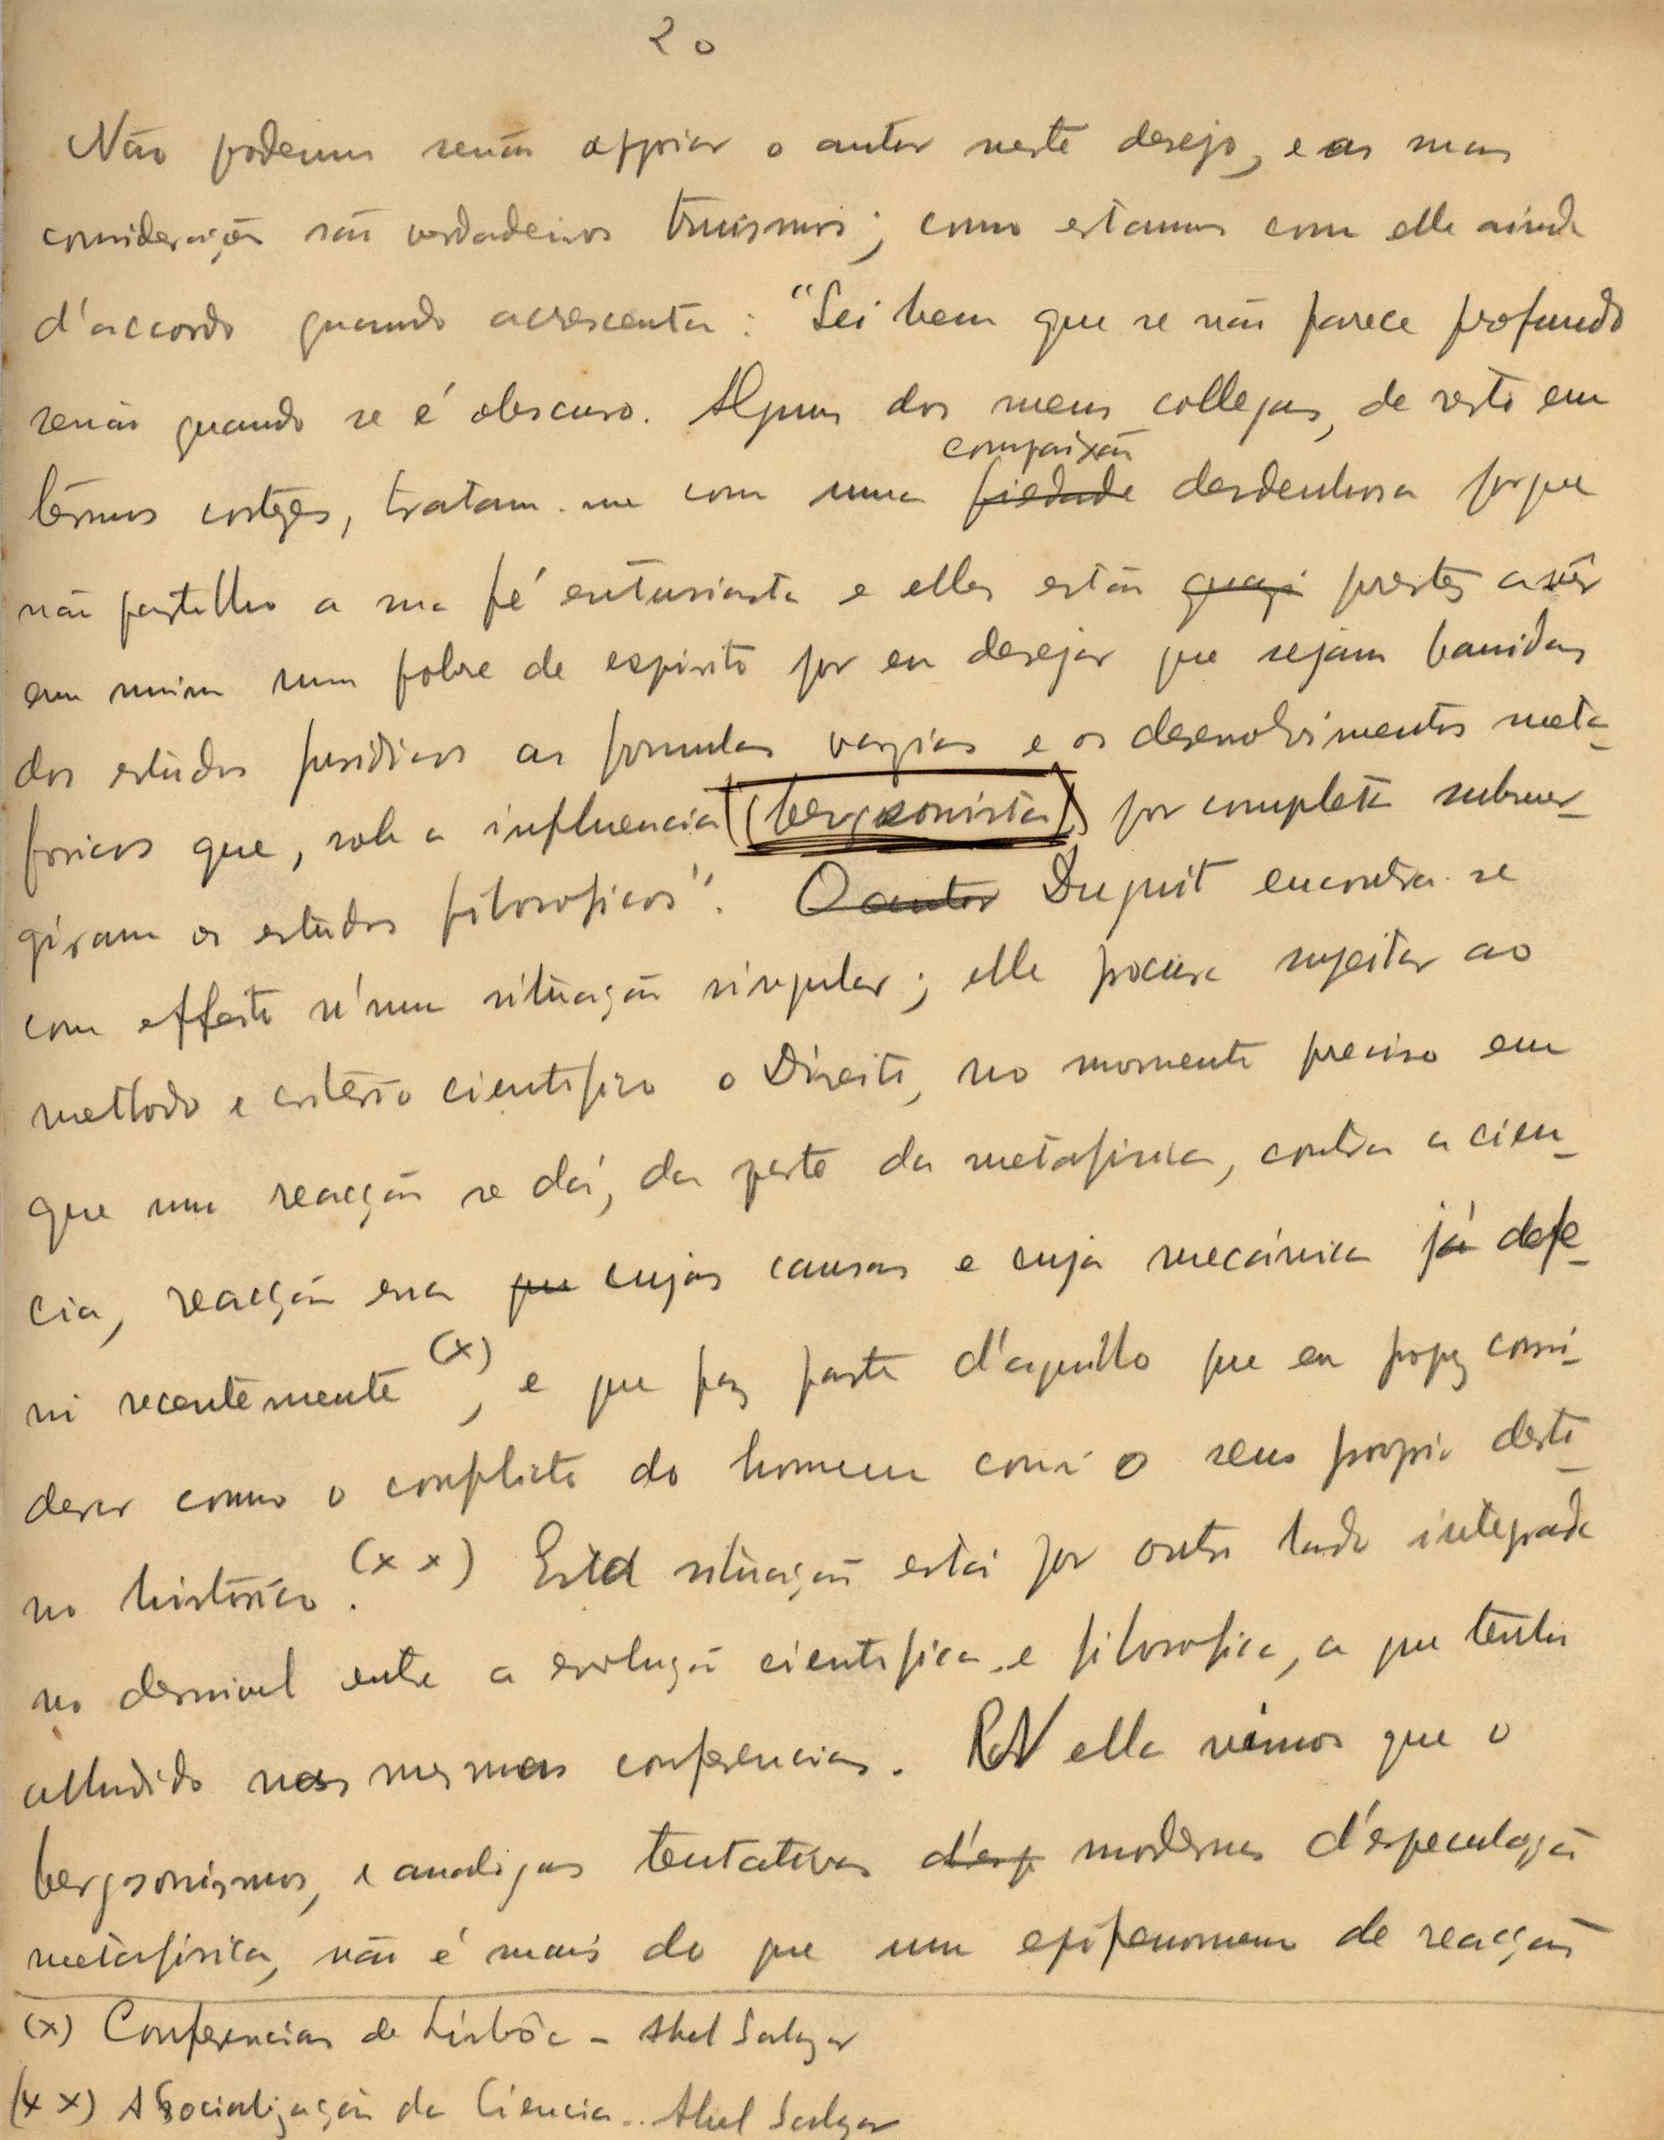 20
Não podemos senão appoiar o autor neste desejo, e as suas
considerações são verdadeiros truismos; como estamos com elle ainda
d'accordo quando acrescenta: "Sei bem que se não parece profundo
senão quando se é obscuro. Alguns dos meus collegas, de resto em
compaixão
têrmos cortezes, tratam-me com uma piedade desdenhosa porque
não partilho a sua fé entusiasta e elles estão quazi prestes a vêr
em mim um pobre de espirito por eu desejar que sejam banidas
dos estudos juridicos as formulas vazias e os desenvolvimentos meta-
foricos que, sob a influencia (bergsonista), por completo submer-
giram os estudos filosoficos". O autor Duguit encontra-se
com effeito n'uma situação singular; elle procura sujeitar ao
methodo e critério cientifico o Direito, no momento preciso em
que uma reacção se dá, da parte da metafisica, contra a cien-
cia, reacção essa que cujas causas e cuja mecánica já defe-
ni recentemente (x), e que faz parte d'aquillo que eu propuz consi-
derar como o conflicto do homem com o seu proprio desti-
no histórico. (x x) Esta situação está por outro lado integrada
no desnivel entre a evolução cientifica e filosofica, a que tenho
alludido nas mesmas conferencias. N'ella vimos que o
bergsonismo, e analogas tentativas d'esp modernas d'especulação
metafisica, não é mais do que um epifenomeno de reacção
(x) Conferencias de Lisbôa – Abel Salazar
(x x) A Socialização da Ciencia – Abel Salazar